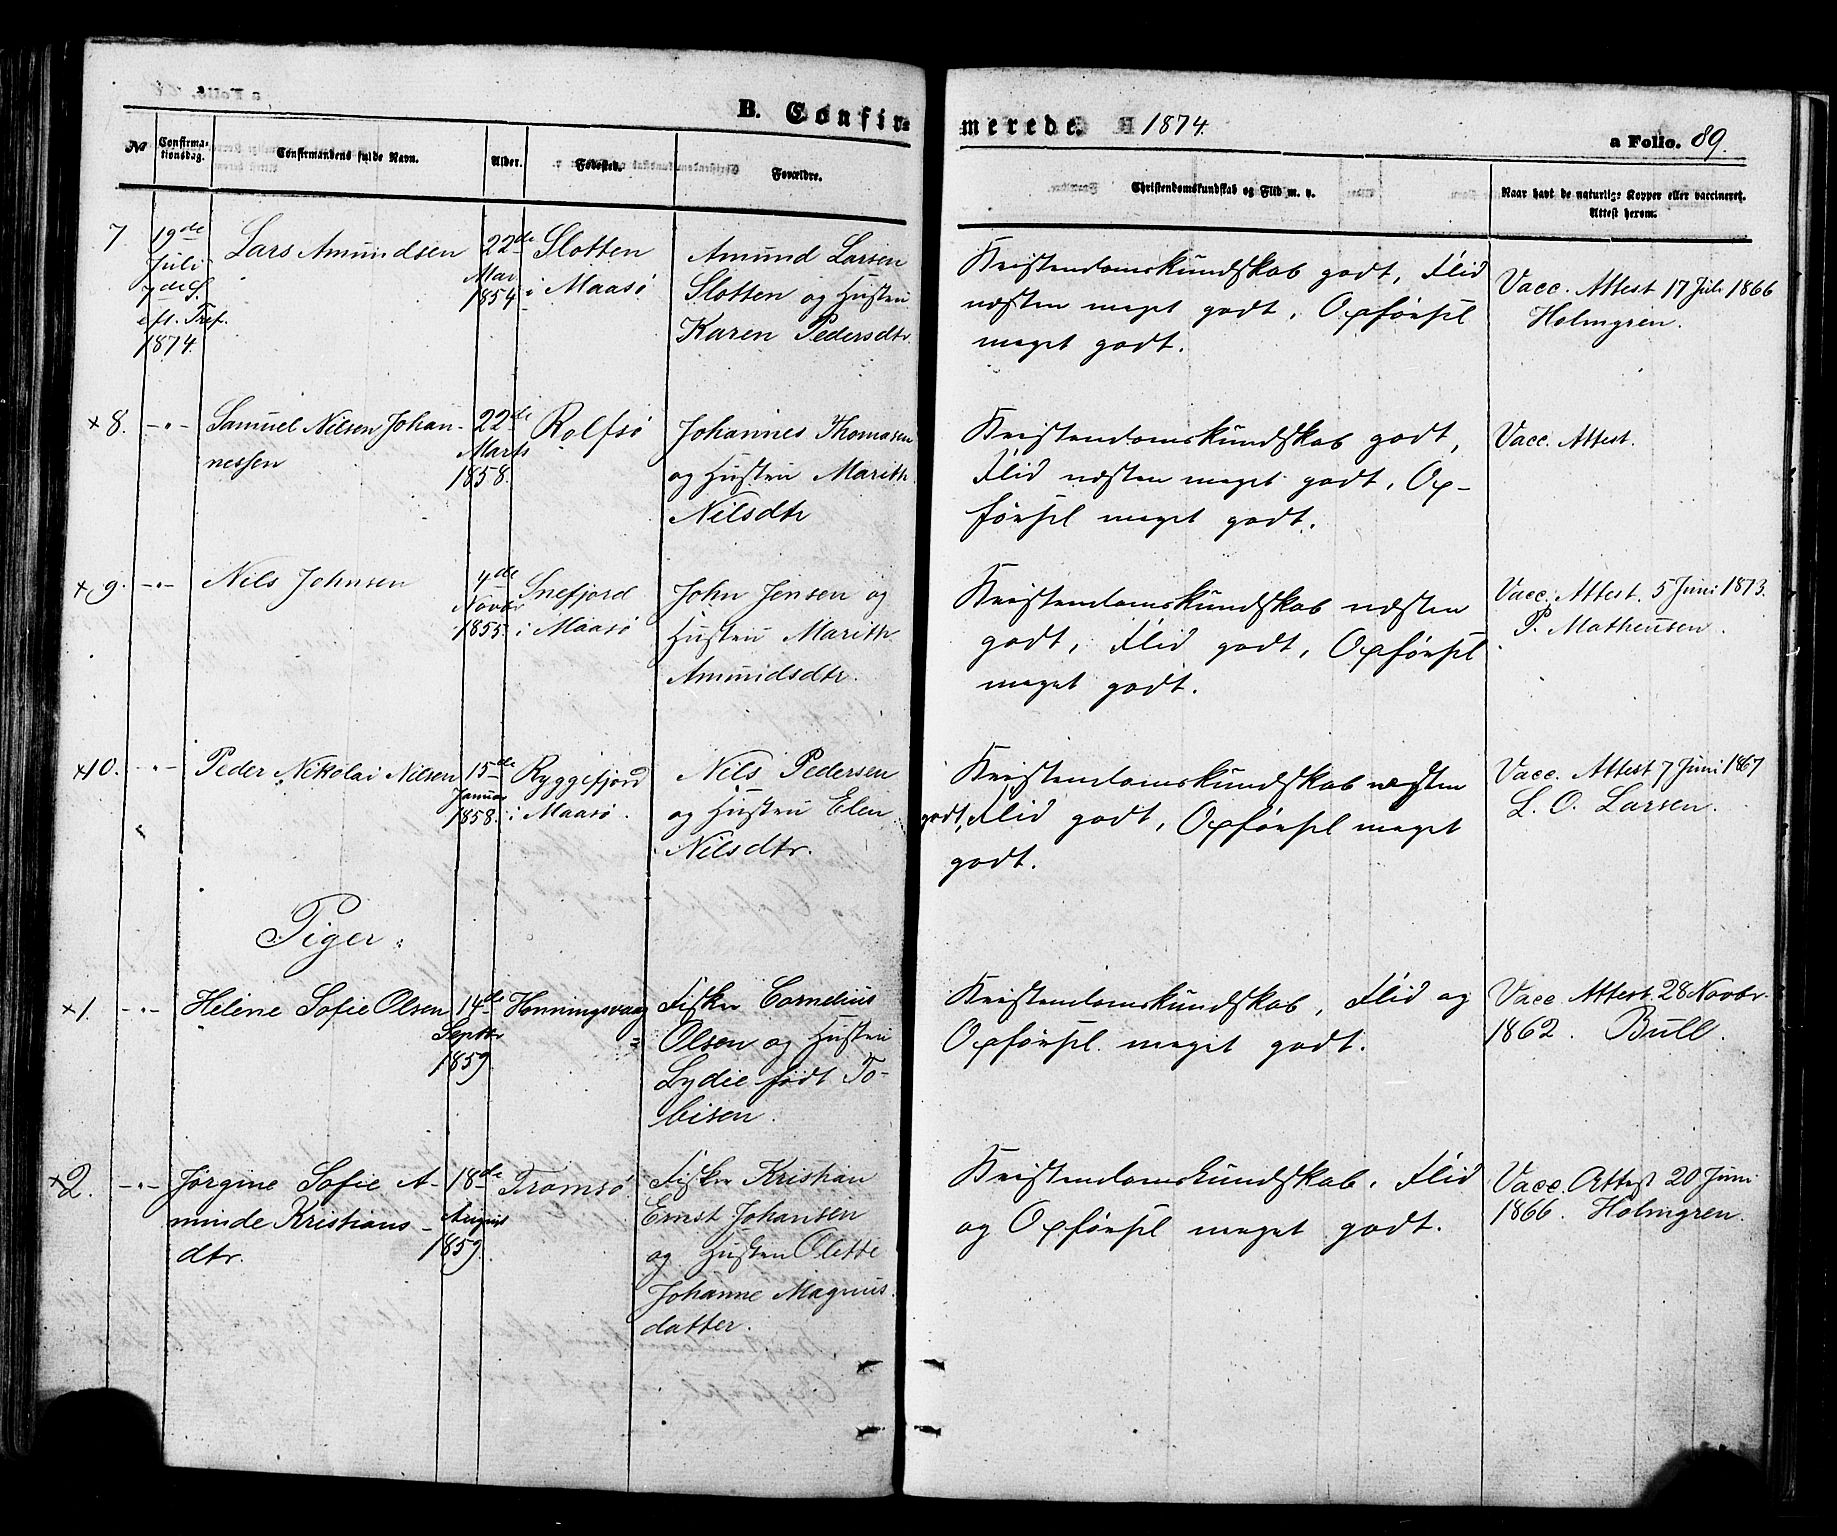 B. Confir=
merede. 1874.
a Folio. 89.
No
Confirma-
tionsdag.
Confirmandens fulde Navn.
Alder.
Fødested.
Forældre.
Christendomskundskab og Flid m. v.
Naar havt de naturlige Kopper eller vaccineret.
Attest herom.
7
19de
Juli
7de S.
eft. Tref.
1874.
Lars Amundsen
22de
Mar
1854
Slotten
i Maasø
Amund Larsen
Slotten og Hustru
Karen Pedersdtr.
Kristendomskundskab godt, Flid
næsten meget godt, Opførsel
meget godt.
Vacc. Attest 17 Juli 1866
Holmgren.
×8.
-"-
Samuel Nilsen Johan-
nessen
22de
Marts
1858.
Rolfsø
Johannes Thomasen
og Hustru Marith
Nilsdtr
Kristendomskundskab godt,
Flid næsten meget godt, Op-
førsel meget godt.
Vacc. Attest.
×9.
-"-
Nils Johnsen
4de
Novbr
1855
Snefjord
i Maasø
John Jensen og
Hustru Marith
Amundsdtr.
Kristendomskundskab næsten
godt, Flid godt, Opførsel
meget godt.
Vacc. Attest. 5 Juni 1873.
P. Matheusen.
×10.
-"-
Peder Nikolai Nilsen
15de
Januar
1858.
Ryggefjord
i Maasø.
Nils Pedersen
og Hustru Elen
Nilsdtr.
Kristendomskundskab næsten
godt, Flid godt, Opførsel meget
godt.
Vacc. Attest 7 Juni 1867
L. O. Larsen.
Piger.
×1.
-"-
Helene Sofie Olsen
14de
Septbr
1859.
Honningsvaag
Fisker Cornelius
Olsen og Hustru
Lydie født To-
bisen.
Kristendomskundskab, Flid og
Opførsel meget godt.
Vacc. Attest. 28 Novbr.
1862. Bull.
×2.
-"-
Jørgine Sofie A-
minde Kristians-
dtr.
18de
August
1859.
Tromsø
Fisker Kristian
Ernst Johansen
og Hustru Olette
Johanne Magnus-
datter.
Kristendomskundskab, Flid
og Opførsel meget godt.
Vacc. Attest 20 Juni
1866. Holmgren.